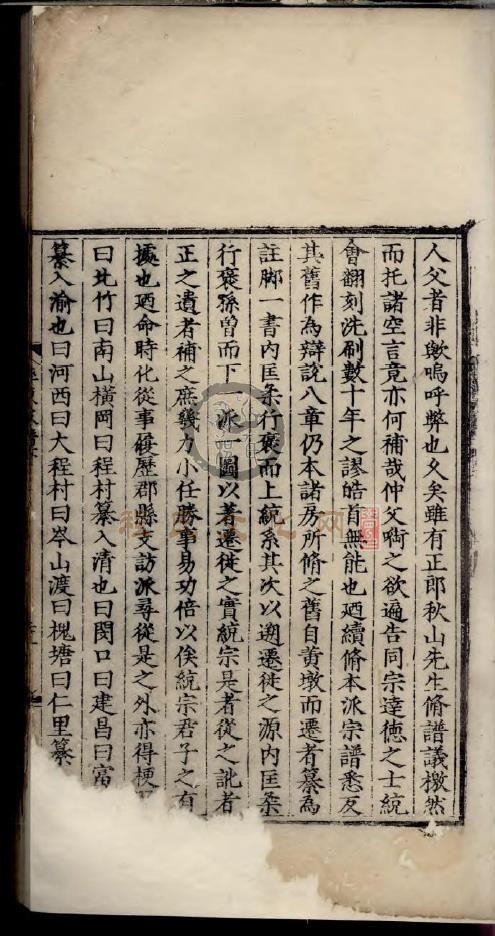 人父者非歟嗚呼弊也久矣雖有正郎秋山先生脩譜議檄然
而托諸空言竟亦何補哉仲父啣之欲遍告同宗達德之士統
會翻刻洗刷數十年之謬皓首無能也廼續脩本派宗譜悉反
其舊作為辯說八章仍本諸房所脩之舊自黄墩而遷者纂為
註脚一書内匡条行褒而上統系其次以遡遷徙之源内匡条
行褒孫曽而下派圖以著遷徙之實統宗是者從之訛者
正之遺者補之庶幾力小任勝事易功倍以俟統宗君子之有
據也廼命時化從事履歷郡縣支訪派尋從是之外亦得梗
曰北竹曰南山横岡曰程村纂入清也曰閔口曰建昌曰富
纂入渝也曰河西曰大程村曰岑山渡曰槐塘曰仁里纂